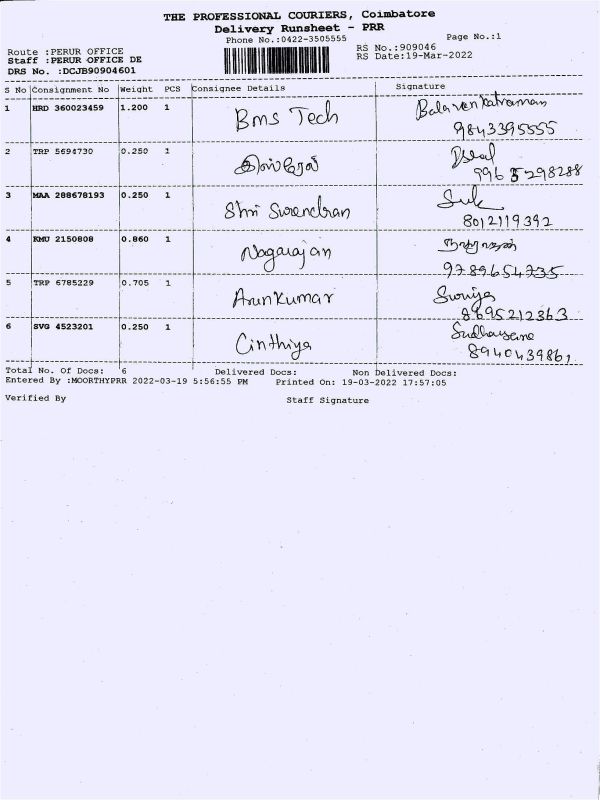 THE PROFESSIONAL COURIERS, Coimbatore
Delivery Runsheet - PRR
Phone No.:0422-3505555 Page No.:1
Route :PERUR OFFICE RS No.:909046
Staff :PERUR OFFICE DE RS Date:19-Mar-2022
DRS No. :DCJB90904601
S No Consignment No Weight PCS Consignee Details Signature
1 HRD 360023459 1.200 1 Bms Tech Balavenkatraman
9843395555
2 TRP 5694730 0.250 1 இஸ்ரேல்
9965298288
3 MAA 288678193 0.250 1 Shri Surendran
8012119392
4 KMU 2150808 0.860 1 Nagarajan நாகராஜன்
9789654735
5 TRP 6785229 0.705 1 Arunkumar
8695212363
6 SVG 4523201 0.250 1 Cinthiya
8940439861
Total No. Of Docs: 6 Delivered Docs: Non Delivered Docs:
Entered By :MOORTHYPRR 2022-03-19 5:56:55 PM Printed On: 19-03-2022 17:57:05
Verified By Staff Signature